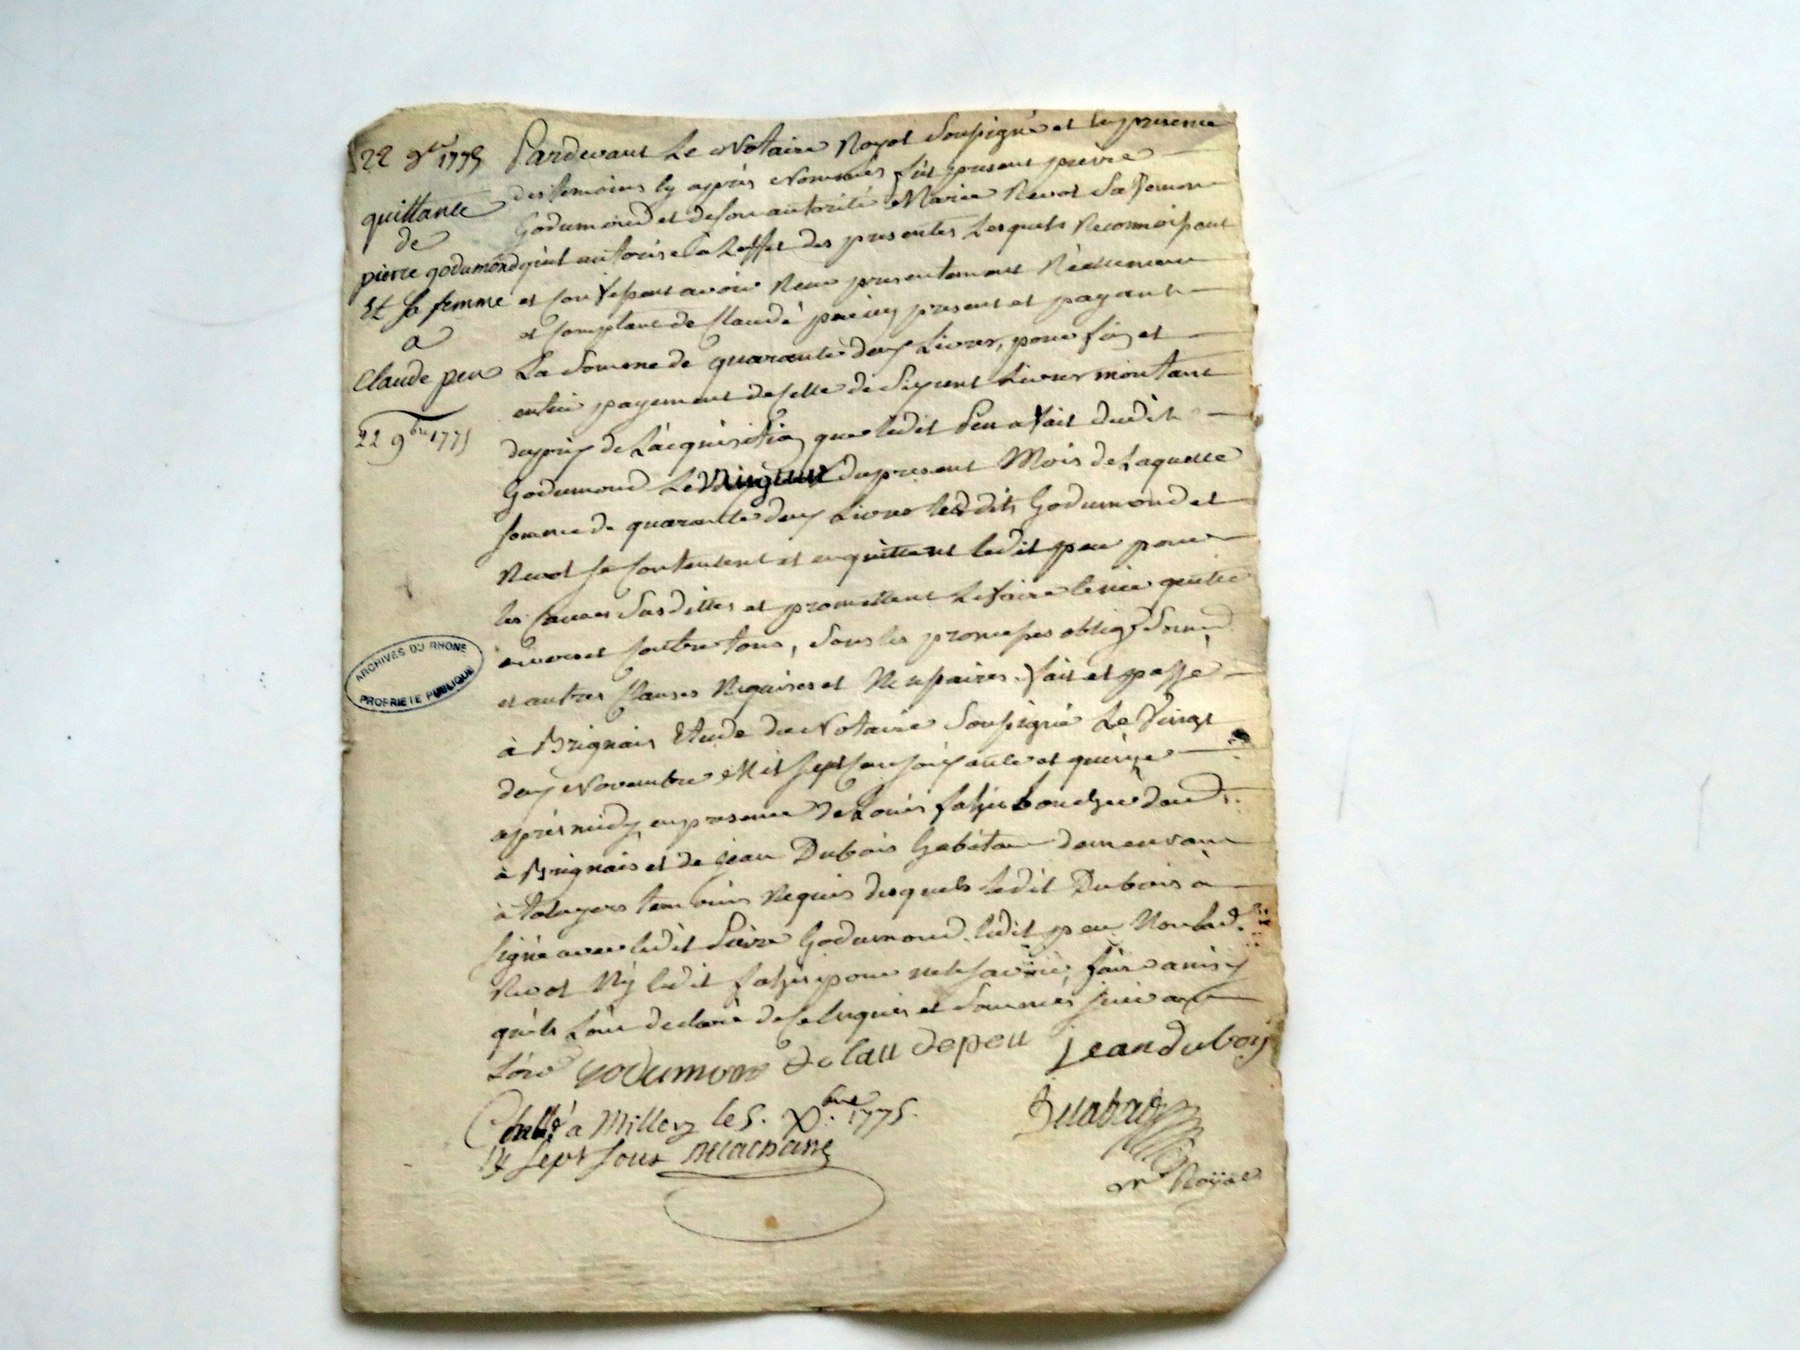 22 9bre 1775
quittance
de
pierre godumond
Et sa femme
a
Claude peu
22 9bre 1775
Pardevant Le Notaire Royal Soussigné et En presence
des temoins cy après Nommés fut present pierre
Godumond et de son autorité Marie Revol Sa femme
qu'il autorise à L'effet des presentes Lesquels Reconnoissent
et Confessent avoir Reçu presentement Réellement
et Comptant de Claude peu icy present et payant
La Somme de quarante deux Livres, pour fin et
entier payement de Celle de Six cent Livres montant
du prix de L'acquisition que ledit Peu a fait dudit
Godumond Le du present Mois de Laquelle
somme de quarante deux Livres lesdits Godumond et
Revol se Contentent et en quittent ledit peu pour
les Causes Susdittes et promettent Le faire tenir quitte
envers et Contre tous, Sous les promesses oblig.
et autres Clauses Requises et Necessaires. fait et passé
à Brignais Etude du Notaire Soussigné Le Vingt
deux Novembre Mil sept Cent soixante et quinze
après midy, en presence de Louis boucher
à Brignais et de jean Dubois habitant demeurant
à taluyers temoins Requis desquels Ledit Dubois a
signé avec ledit Pierre Godumond. ledit peu Non lad.
Revol Ny ledit pour ne le savoir faire ainsy
qu'ils L'ont declaré de ce Enquis et Sommés suivant
L'ord
godumond
de peu
jean duboiy
Contllé a Millery le 5. Xbre 1775.
Rt sept sous
nre Royal
ARCHIVES DU RHONE
PROPRIETE PUBLIQUE